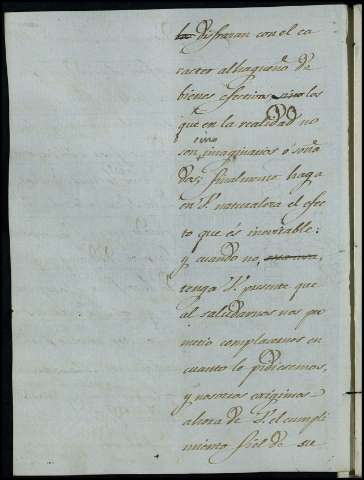 los disfrazan con el ca
racter alhagueño de
bienes efectivos, sino los
qᵉ en la realidad no
sino
son imaginarios o soña
dos; finalmente haga
en Sⁱ naturaleza el efec
to que és inevitable:
y cuando no,
tenga Sⁱ presente que
al saludarnos nos pro
metio complacernos en
cuanto le pidiesemos,
y nosotros exigimos
ahora de Sⁱ el cumpli
miento fiel de su